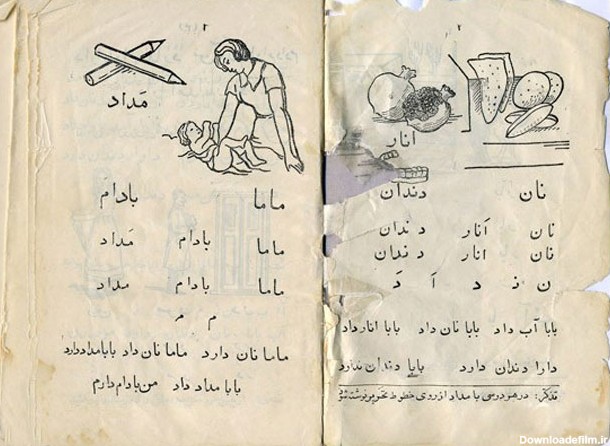 ۲
انار
نان دندان
نان اَنار دندان
نان انار دندان
ن نـ د اَ دَ
بابا آب داد بابا نان داد بابا انار داد
دارا دندان دارد بابا دندان ندارد
تذکر: در هر درسی با مداد از روی خطوط
مَداد
ماما بادام
ماما بادام مَداد
ماما بادام مداد
م مـ
ماما نان دارد ماما نان داد بابا مداد دارد
بابا مداد داد من بادام دارم
Downloadefilm.ir